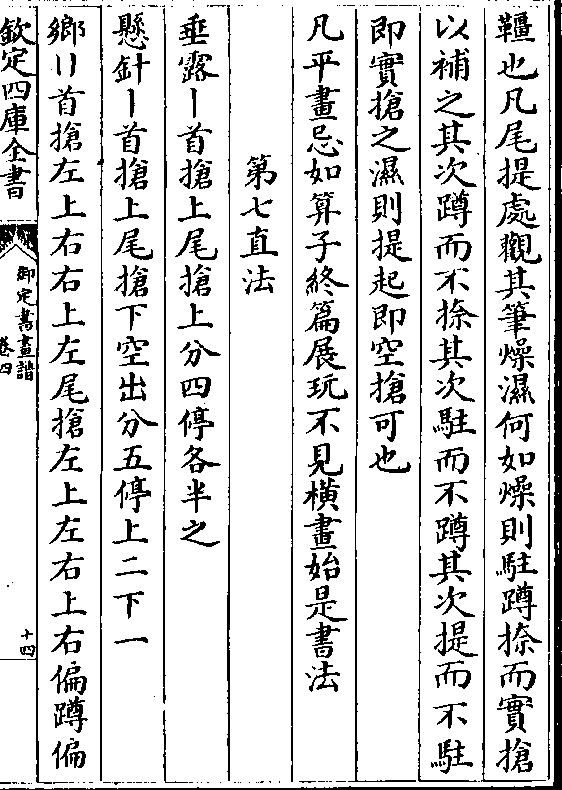 韁也凡尾提處觀其筆燥濕何如燥則駐蹲捺而實搶
以補之其次蹲而不捺其次駐而不蹲其次提而不駐
即實搶之濕則提起即空搶可也
凡平畫忌如算子終篇展玩不見橫畫始是書法
第七直法
垂露丨首搶上尾搶上分四停各半之
懸針丨首搶上尾搶下空出分五停上二下一
鄉〢首搶左上右右上左尾搶左上左右上右偏蹲偏
欽定四庫全書
御定書畫譜
卷四
十四